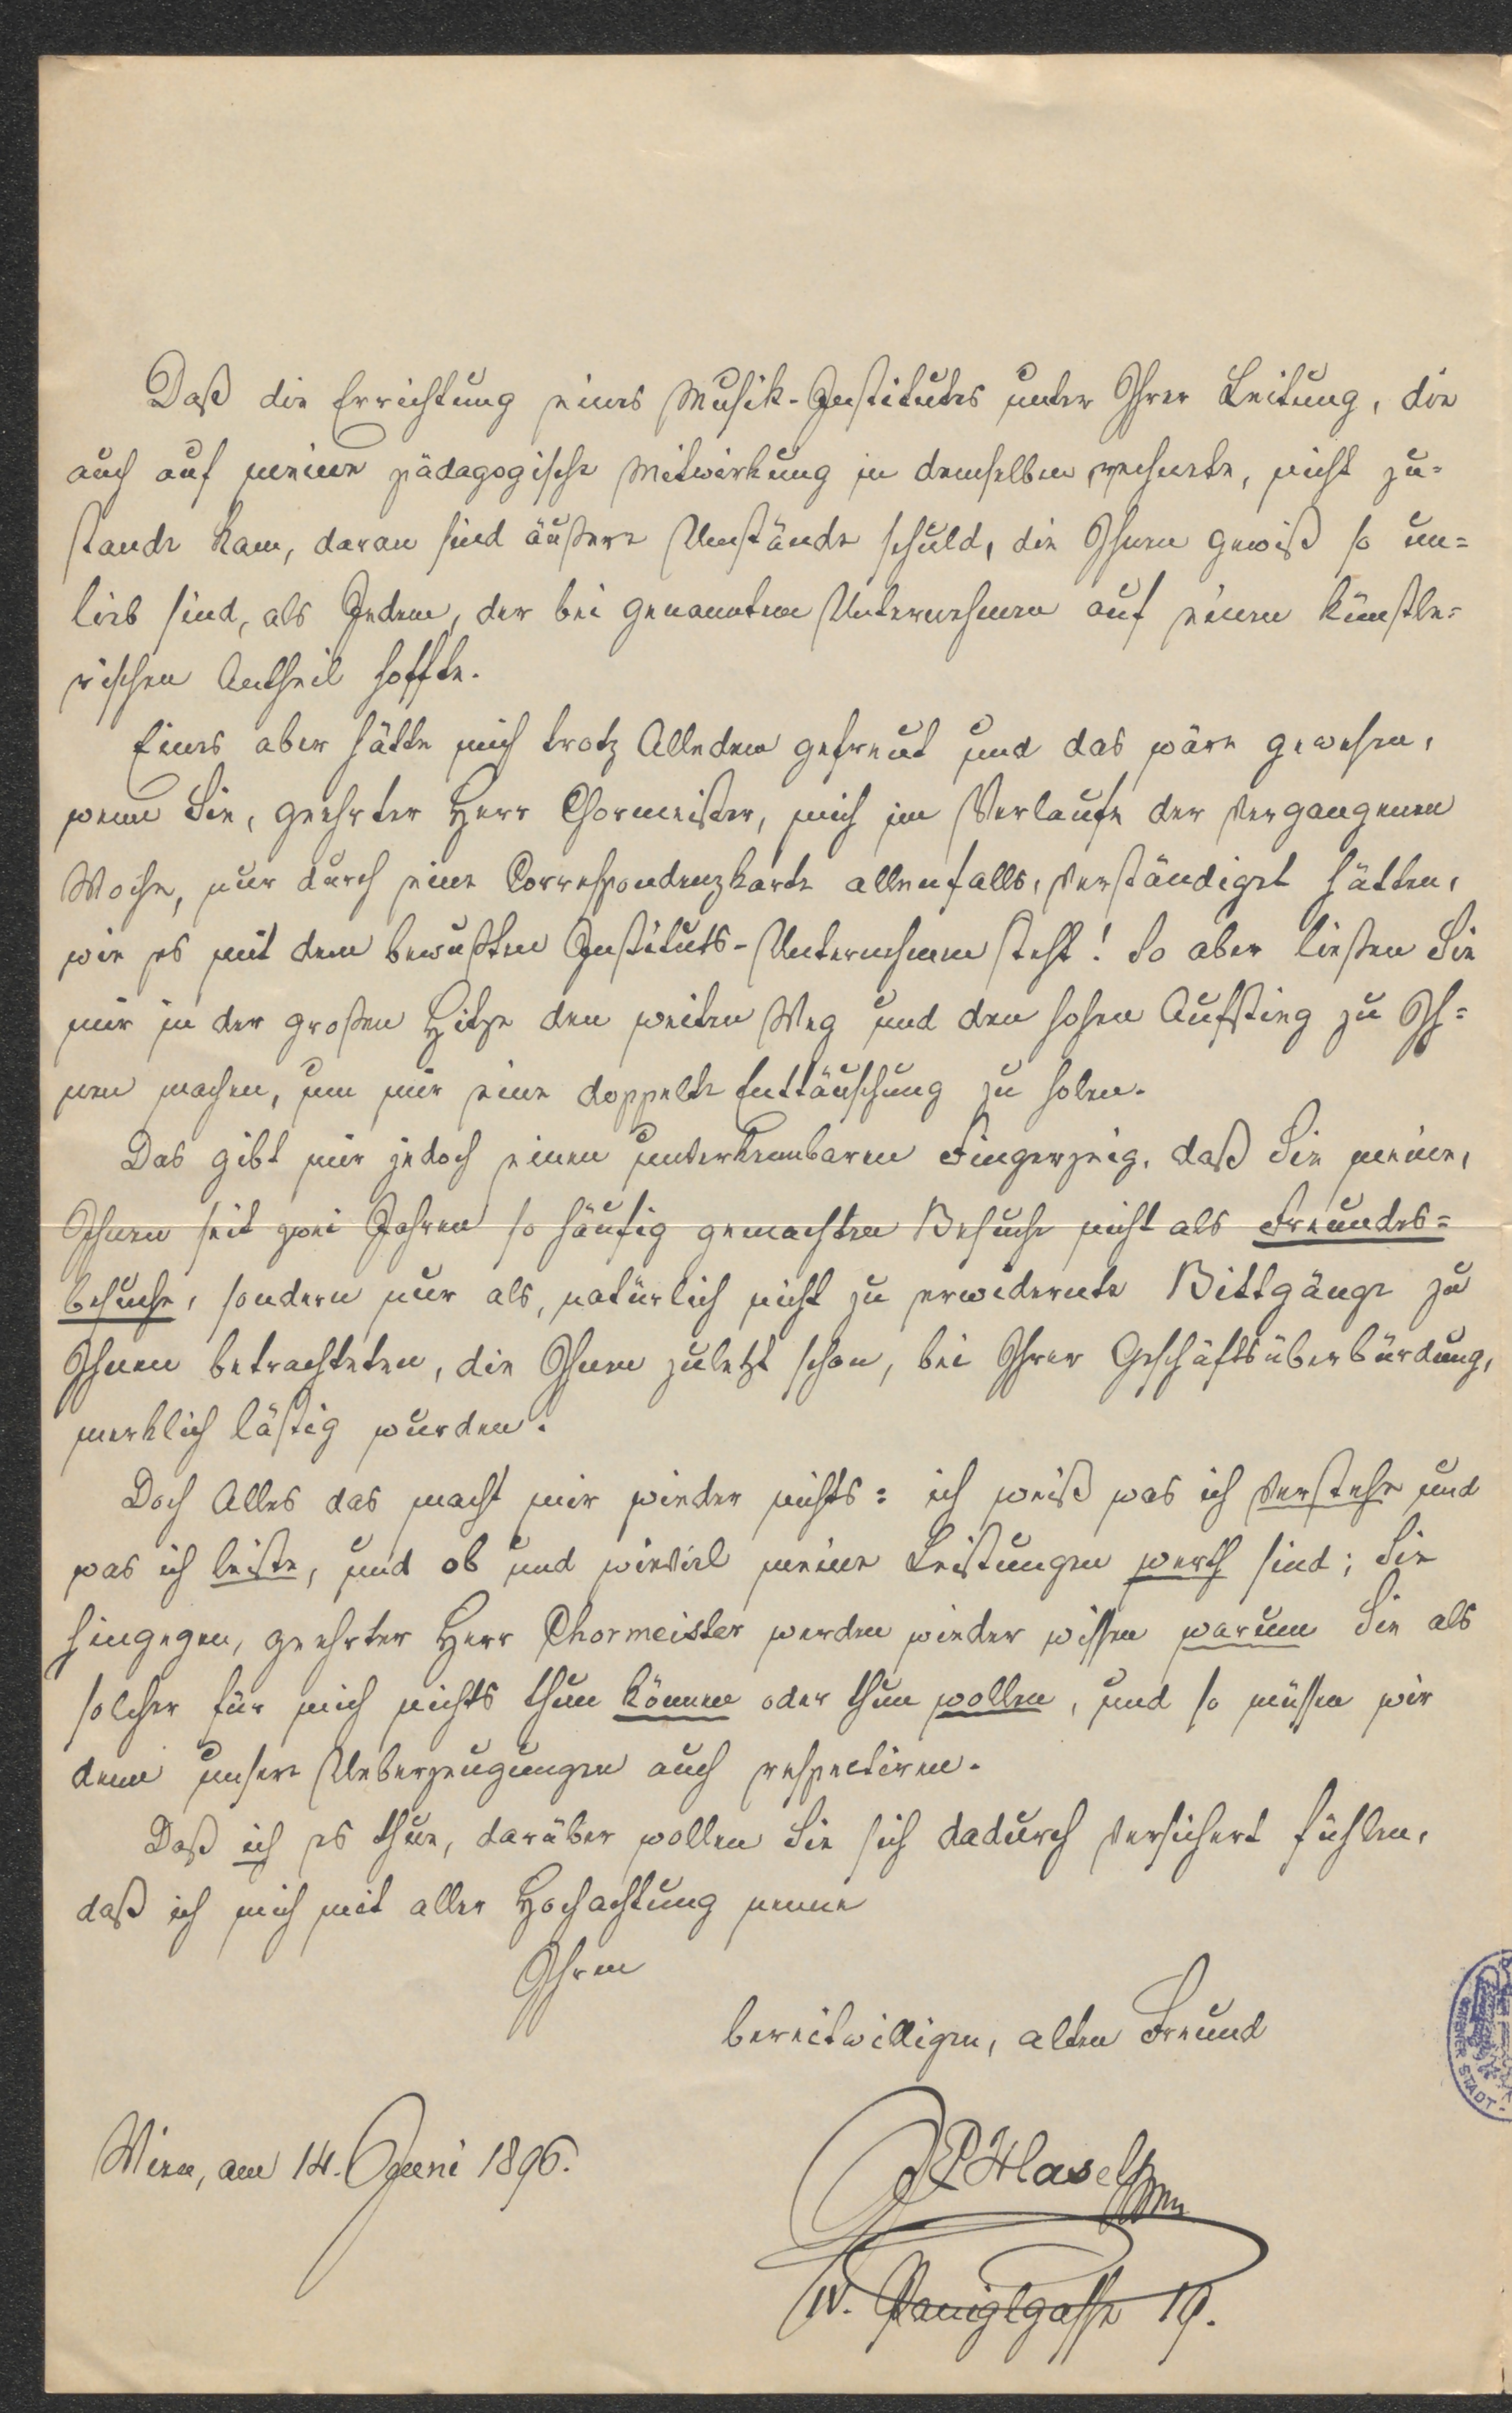 Daß die Errichtung eines Musik-Institutes unter Ihrer Leitung, die
auch auf meine pädagogische Mitwirkung in demselben rechnete, nicht zu=
stande kam, daran sind äußere Umstände schuld, die Ihnen gewiß so un=
lieb sind, als Jedem, der bei genanntem Unternehmen auf einen künstle=
rischen Antheil hoffte.
Eines aber hätte mich trotz Alledem gefreut und das wäre gewesen,
wenn Sie, geehrter Herr Chormeister, mich im Verlaufe der vergangenen
Woche, nur durch eine Correspondenzkarte allenfalls, verständiget hätten,
wie es mit dem bewußten Instituts-Unternehmen steht! So aber ließen Sie
mir in der großen Hitze den weiten Weg und den hohen Aufstieg zu Ih=
nen machen, um mir eine doppelte Enttäuschung zu holen.
Das gibt mir jedoch einen unverkennbaren Fingerzeig, daß Sie meine,
Ihnen seit zwei Jahren so häufig gemachten Besuche nicht als Freundes=
besuche, sondern nur als, natürlich nicht zu erwidernte Bittgänge zu
Ihnen betrachteten, die Ihnen zuletzt schon, bei Ihrer Geschäftsüberbürdung,
merklich lästig wurden.
Doch Alles das macht mir wieder nichts: ich weiß was ich verstehe und
was ich leiste, und ob und wieviel meine Leistungen werth sind; Sie
hingegen, geehrter Herr Chormeister werden wieder wissen warum Sie als
solcher für mich nichts thun können oder thun wollen, und so müssen wir
denn unsere Ueberzeugungen auch respectiren.
Daß ich es thue, darüber wollen Sie sich dadurch versichert fühlen,
daß ich mich mit aller Hochachtung nenne
Ihren
bereitwilligen, alten Freund
Wien, am 14. Juni 1896.
IV. Paniglgasse 19.
WIENER STADT-